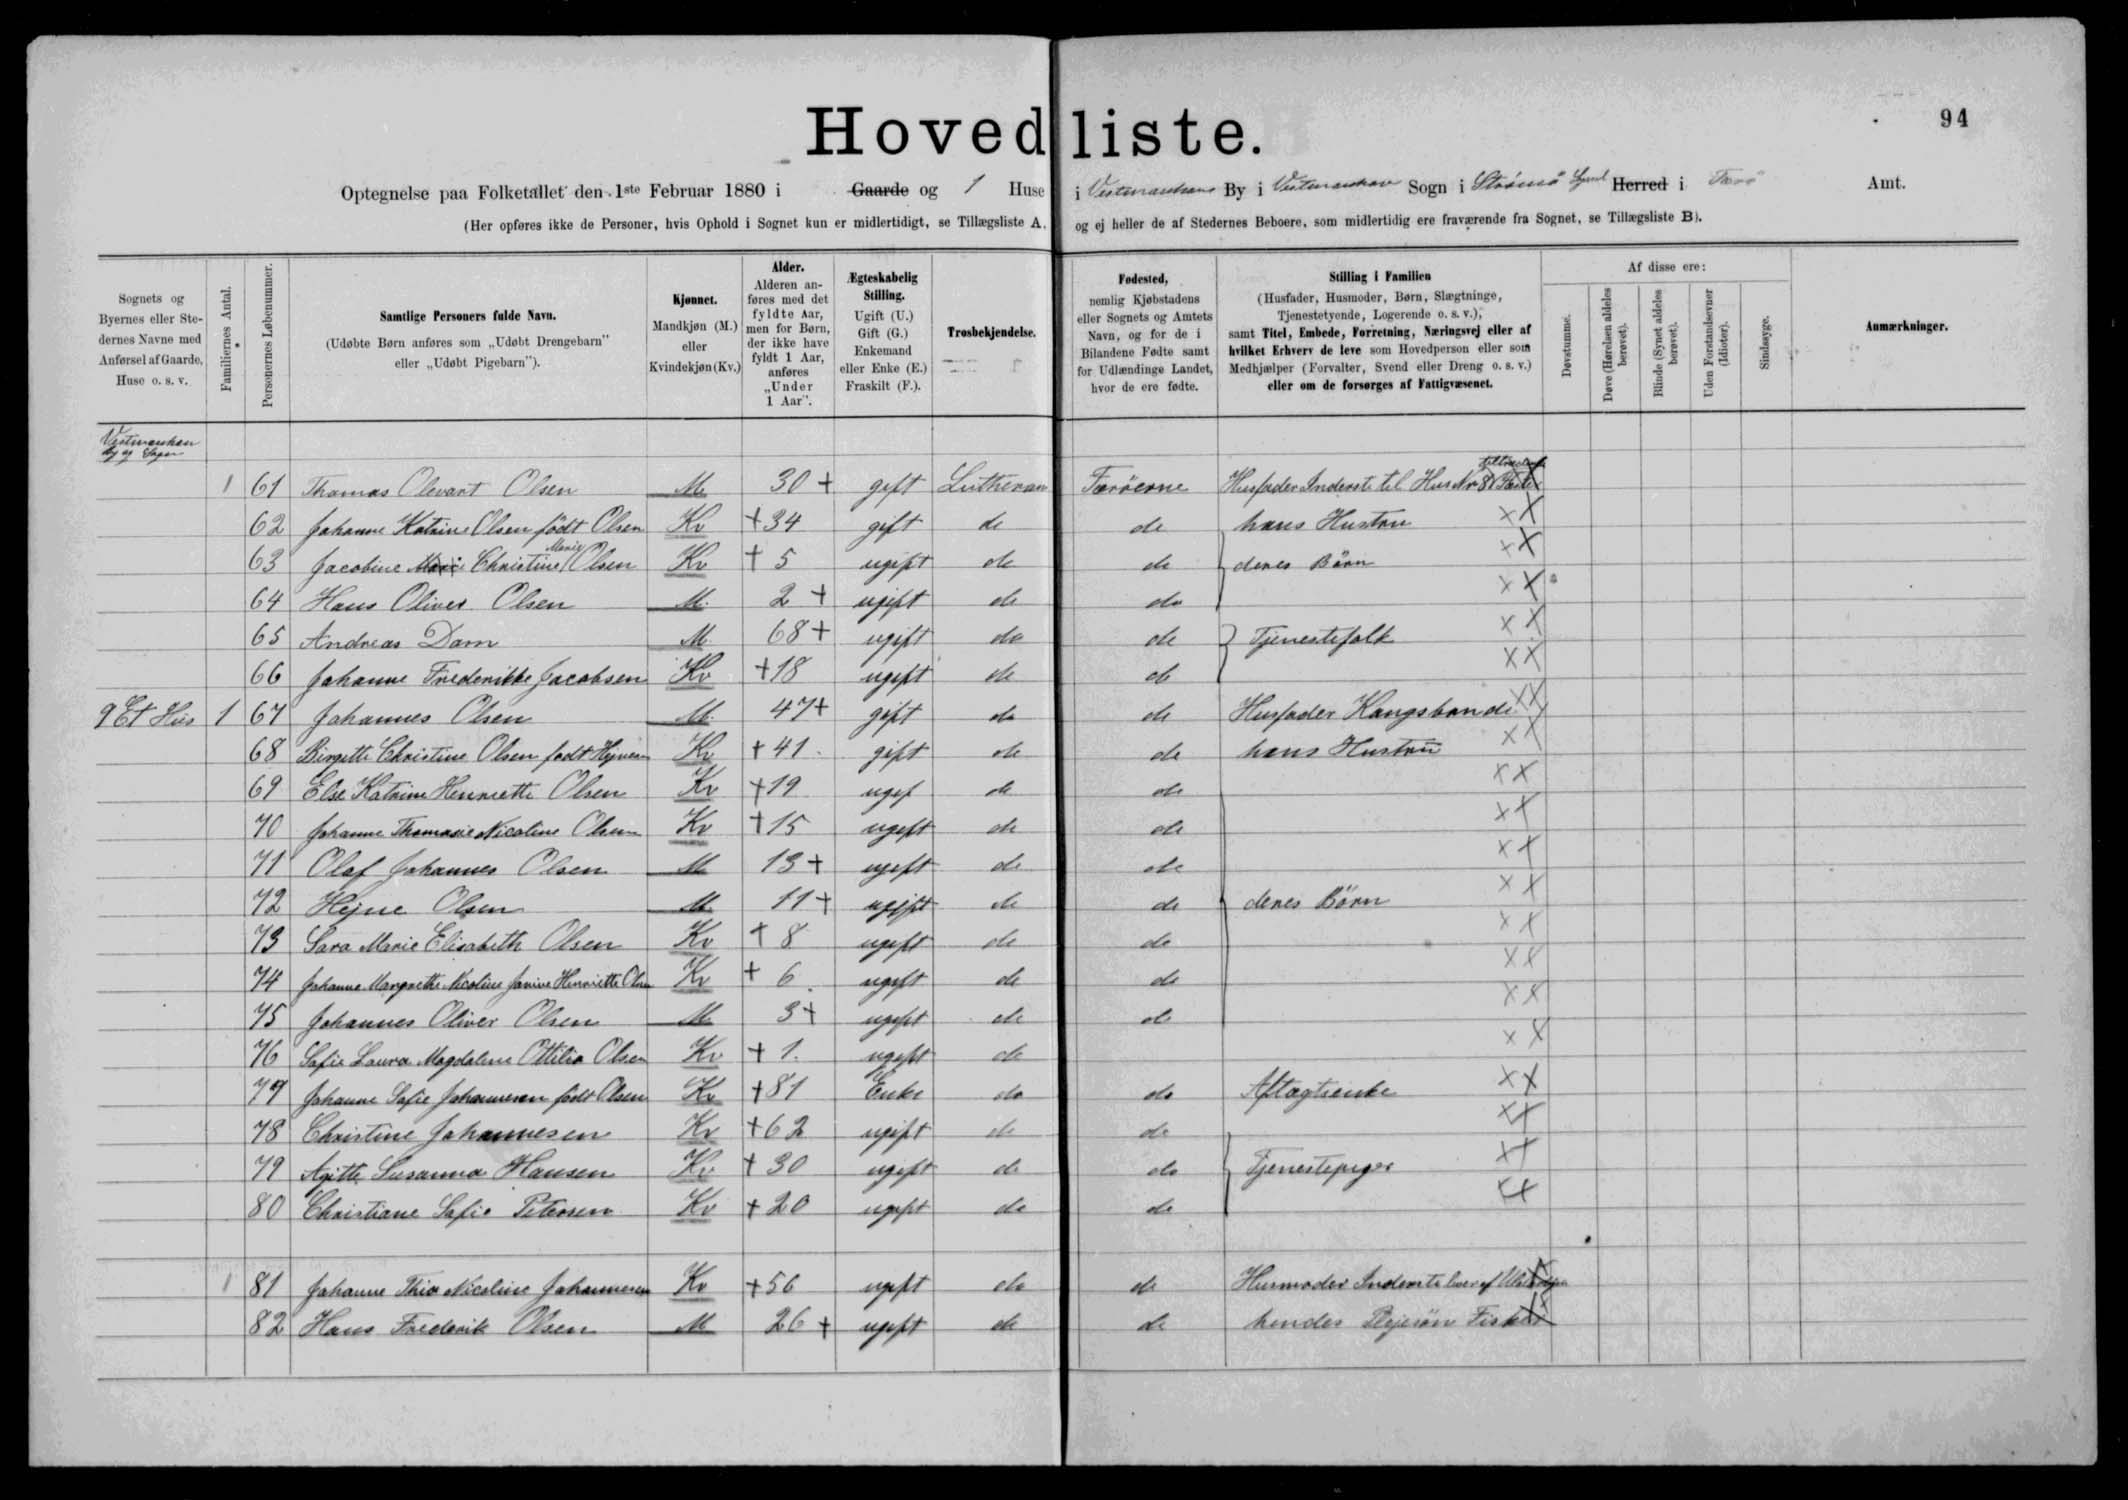 94
Hovedliste.
Optegnelse paa Folketallet den 1ste Februar 1880 i Gaarde og 1 Huse i Vestmanhavns By i Vestmanhavn Sogn i Strömö Syssel Herred i Færö Amt.
(Her opføres ikke de Personer, hvis Ophold i Sognet kun er midlertidigt, se Tillægsliste A, og ej heller de af Stedernes Beboere, som midlertidig ere fraværende fra Sognet, se Tillægsliste B).
Sognets og Byernes eller Stedernes Navne med Anførsel af Gaarde, Huse o. s. v.
Familiernes Antal.
Personernes Løbenummer.
Samtlige Personers fulde Navn. (Udøbte Børn anføres som „Udøbt Drengebarn" eller „Udøbt Pigebarn").
Kjønnet. Mandkjøn (M.) eller Kvindekjøn (Kv.)
Alder. Alderen anføres med det fyldte Aar, men for Børn, der ikke have fyldt 1 Aar, anføres „Under 1 Aar".
Ægteskabelig Stilling. Ugift (U.) Gift (G.) Enkemand eller Enke (E.) Fraskilt (F.).
Trosbekjendelse.
Fødested, nemlig Kjøbstadens eller Sognets og Amtets Navn, og for de i Bilandene Fødte samt for Udlændinge Landet, hvor de ere fødte.
Stilling i Familien (Husfader, Husmoder, Børn, Slægtninge, Tjenestetyende, Logerende o. s. v.), samt Titel, Embede, Forretning, Næringsvej eller af hvilket Erhverv de leve som Hovedperson eller som Medhjælper (Forvalter, Svend eller Dreng o. s. v.) eller om de forsørges af Fattigvæsenet.
Af disse ere:
Døvstumme.
Døve (Hørelsen aldeles berøvet).
Blinde (Synet aldeles berøvet).
Uden Forstandsevner (Idioter).
Sindssyge.
Anmærkninger.
Vestmanhavn
By og Sogn
1 61 Thomas Olevart Olsen M 30 + gift Lutheran Færöerne Husfader Inderst til Hus Nr 8
62 Johanne Katrine Olsen födt Olsen Kv + 34 gift do do hans Hustru XX
63 Jacobine Marie Christine Marie Olsen Kv + 5 ugift do do deres Börn XX
64 Hans Oliver Olsen M. 2 + ugift do do XX
65 Andreas Dam M. 68 + ugift do do Tjenestefolk XX
66 Johanne Frederikke Jacobsen Kv + 18 ugift do do XX
9 Et Hus 1 67 Johannes Olsen M. 47 + gift do do Husfader Kongsbonde XX
68 Birgitte Christine Olsen födt Hejnesen Kv + 41 gift do do hans Hustru XX
69 Else Katrine Henriette Olsen Kv + 19 ugif do do XX
70 Johanne Thomasie Nicoline Olsen Kv + 15 ugift do do XX
71 Olaf Johannes Olsen M 13 + ugift do do XX
72 Hejne Olsen M 11 + ugift do do deres Börn XX
73 Sara Marie Elisabeth Olsen Kv + 8 ugift do do XX
74 Johanne Margrethe Nicoline Janine Henriette Olsen Kv + 6 ugift do do XX
75 Johannes Oliver Olsen M 3 + ugift do do XX
76 Sofie Laura Magdalene Ottilia Olsen Kv + 1 ugift do XX
77 Johanne Sofie Johannesen födt Olsen Kv + 81 Enke do do Aftægtsenke XX
78 Christine Johannesen Kv + 62 ugift do do XX
79 Agitte Susanna Hansen Kv + 30 ugift do do Tjenestepiger XX
80 Christiane Sofie Petersen Kv + 20 ugift do do XX
1 81 Johanne Thia Nicoline Johannesen Kv + 56 ugift do do Husmoder Inderste lever af
82 Hans Frederik Olsen M 26 + ugift do do hendes Plejesön Fisker